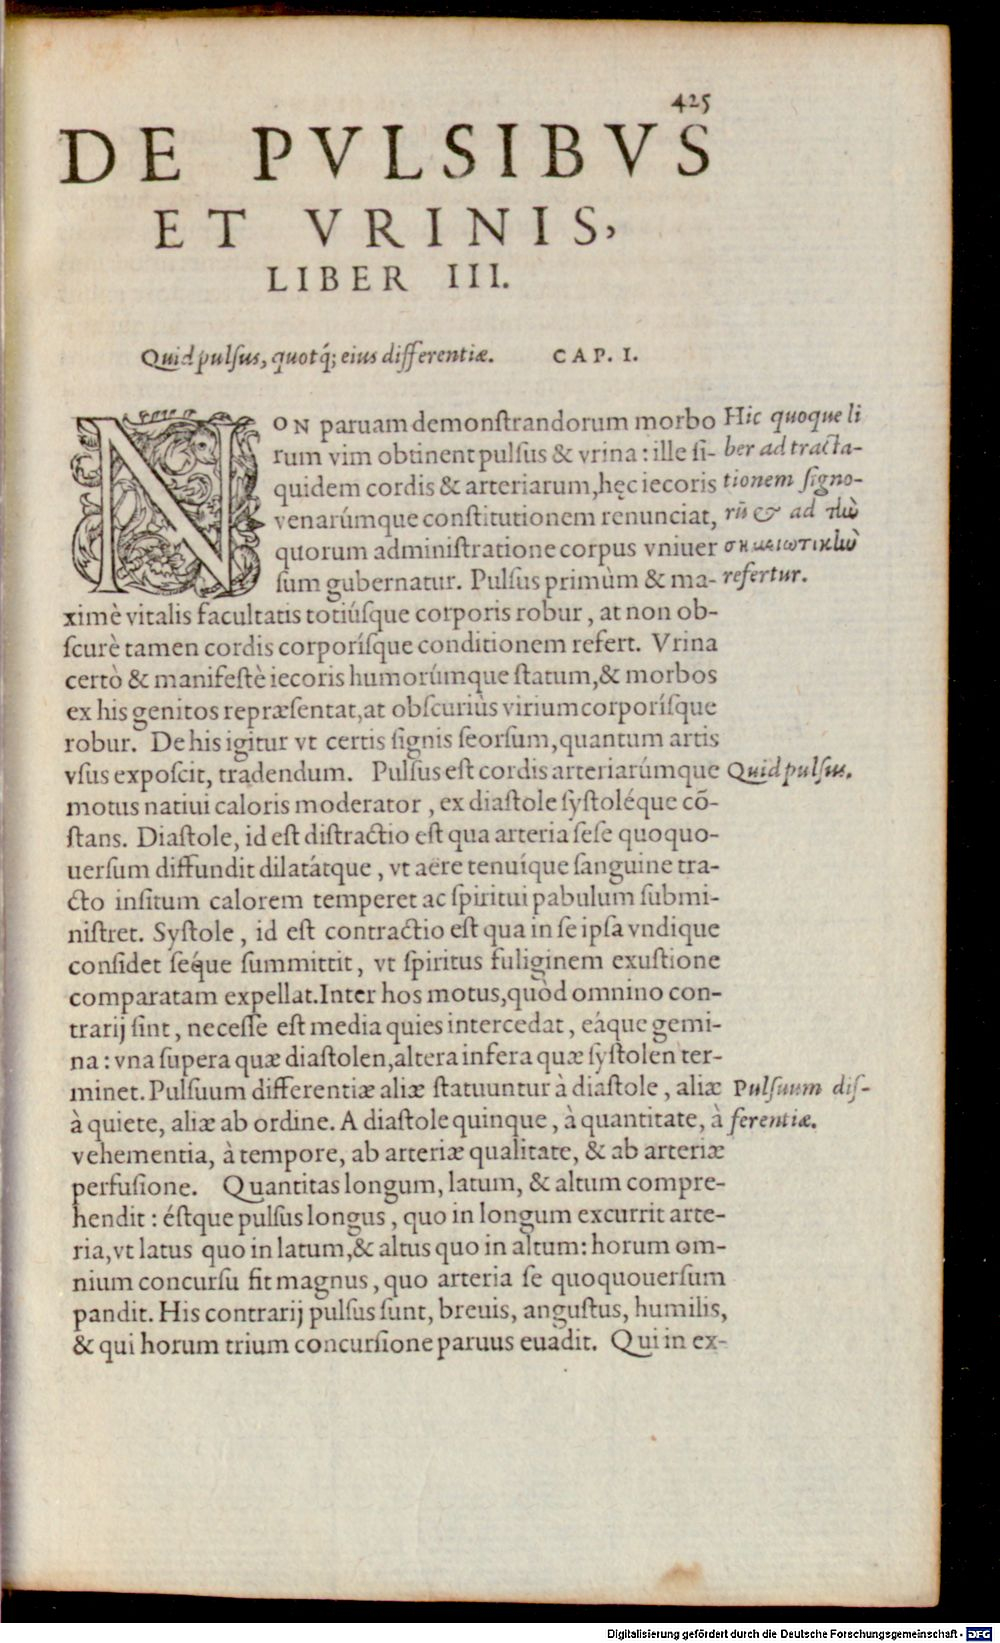 425
DE PVLSIBVS
ET VRINIS,
LIBER III.
Quid pulſus, quotq́; eius differentiæ. CAP. I.
NON paruam demonſtrandorum morbo
rum vim obtinent pulſus & vrina: ille ſi-
quidem cordis & arteriarum, hęc iecoris
venarúmque conſtitutionem renunciat,
quorum adminiſtratione corpus vniuer
ſum gubernatur. Pulſus primùm & ma-
ximè vitalis facultatis totiúſque corporis robur, at non ob-
ſcurè tamen cordis corporíſque conditionem refert. Vrina
certò & manifeſtè iecoris humorúmque ſtatum, & morbos
ex his genitos repræſentat, at obſcuriùs virium corporíſque
robur. De his igitur vt certis ſignis ſeorſum, quantum artis
vſus expoſcit, tradendum. Pulſus eſt cordis arteriarúmque
motus natiui caloris moderator, ex diaſtole ſyſtoléque cō-
ſtans. Diaſtole, id eſt diſtractio eſt qua arteria ſeſe quoquo-
uerſum diffundit dilatátque, vt aëre tenuíque ſanguine tra-
cto inſitum calorem temperet ac ſpiritui pabulum ſubmi-
niſtret. Syſtole, id eſt contractio eſt qua in ſe ipſa vndique
conſidet ſeq́ue ſummittit, vt ſpiritus fuliginem exuſtione
comparatam expellat. Inter hos motus, quòd omnino con-
trarij ſint, neceſſe eſt media quies intercedat, eáque gemi-
na: vna ſupera quæ diaſtolen, altera infera quæ ſyſtolen ter-
minet. Pulſuum differentiæ aliæ ſtatuuntur à diaſtole, aliæ
à quiete, aliæ ab ordine. A diaſtole quinque, à quantitate, à
vehementia, à tempore, ab arteriæ qualitate, & ab arteriæ
perfuſione. Quantitas longum, latum, & altum compre-
hendit: éſtque pulſus longus, quo in longum excurrit arte-
ria, vt latus quo in latum, & altus quo in altum: horum om-
nium concurſu fit magnus, quo arteria ſe quoquouerſum
pandit. His contrarij pulſus ſunt, breuis, anguſtus, humilis,
& qui horum trium concurſione paruus euadit. Qui in ex-
Hic quoque li
ber ad tracta-
tionem ſigno-
rū & ad τὴν
σημειωτικὴν
refertur.
Quid pulſus.
Pulſuum dif-
ferentiæ.
Digitalisierung gefördert durch die Deutsche Forschungsgemeinschaft - DFG